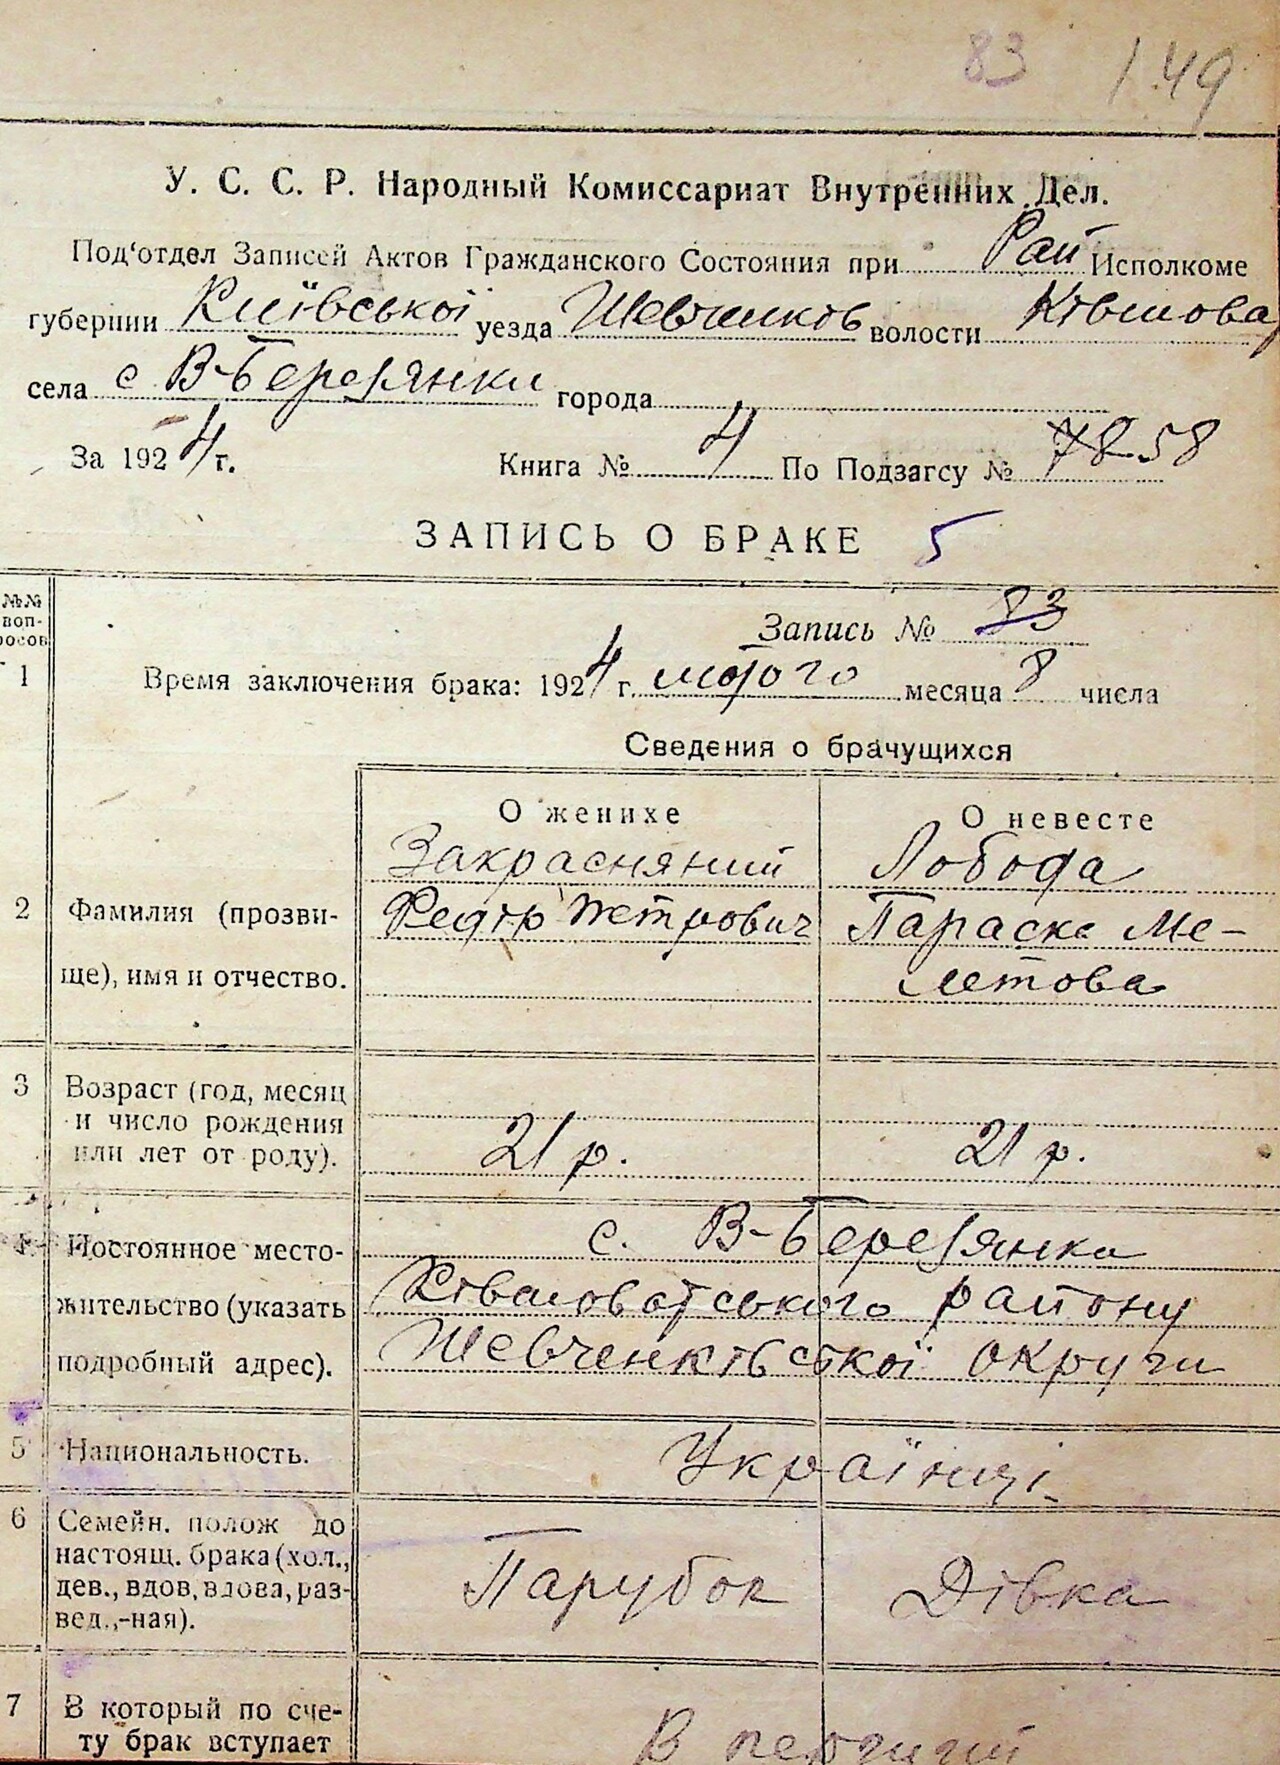 83 149
У. С. С. Р. Народный Комиссариат Внутренних Дел.
Под‘отдел Записей Актов Гражданского Состояния при Рай Исполкоме
губернии Київської уезда Шевченков волости Ківшова
села с В-Березянки города
За 1924 г. Книга № 4 По Подзагсу № 78 58
ЗАПИСЬ О БРАКЕ 5
№№ вопросов
Запись № 83
1 Время заключения брака: 1924 г. лютого месяца 8 числа
Сведения о брачущихся
О женихе О невесте
Закрасняний Лобода
2 Фамилия (прозви- Федір Петрович Параска Ме-
ще), имя и отчество. летова
3 Возраст (год, месяц
и число рождения
или лет от роду). 21 р. 21 р.
с. В-Березянка
4 Постоянное место-
жительство (указать Ківшоватського району
подробный адрес). Шевченківської округи
5 Национальность. Українці
6 Семейн. полож до
настоящ. брака (хол.,
дев., вдов, вдова, раз- Парубок Дівка
вед.,-ная).
7 В который по сче-
ту брак вступает В перший